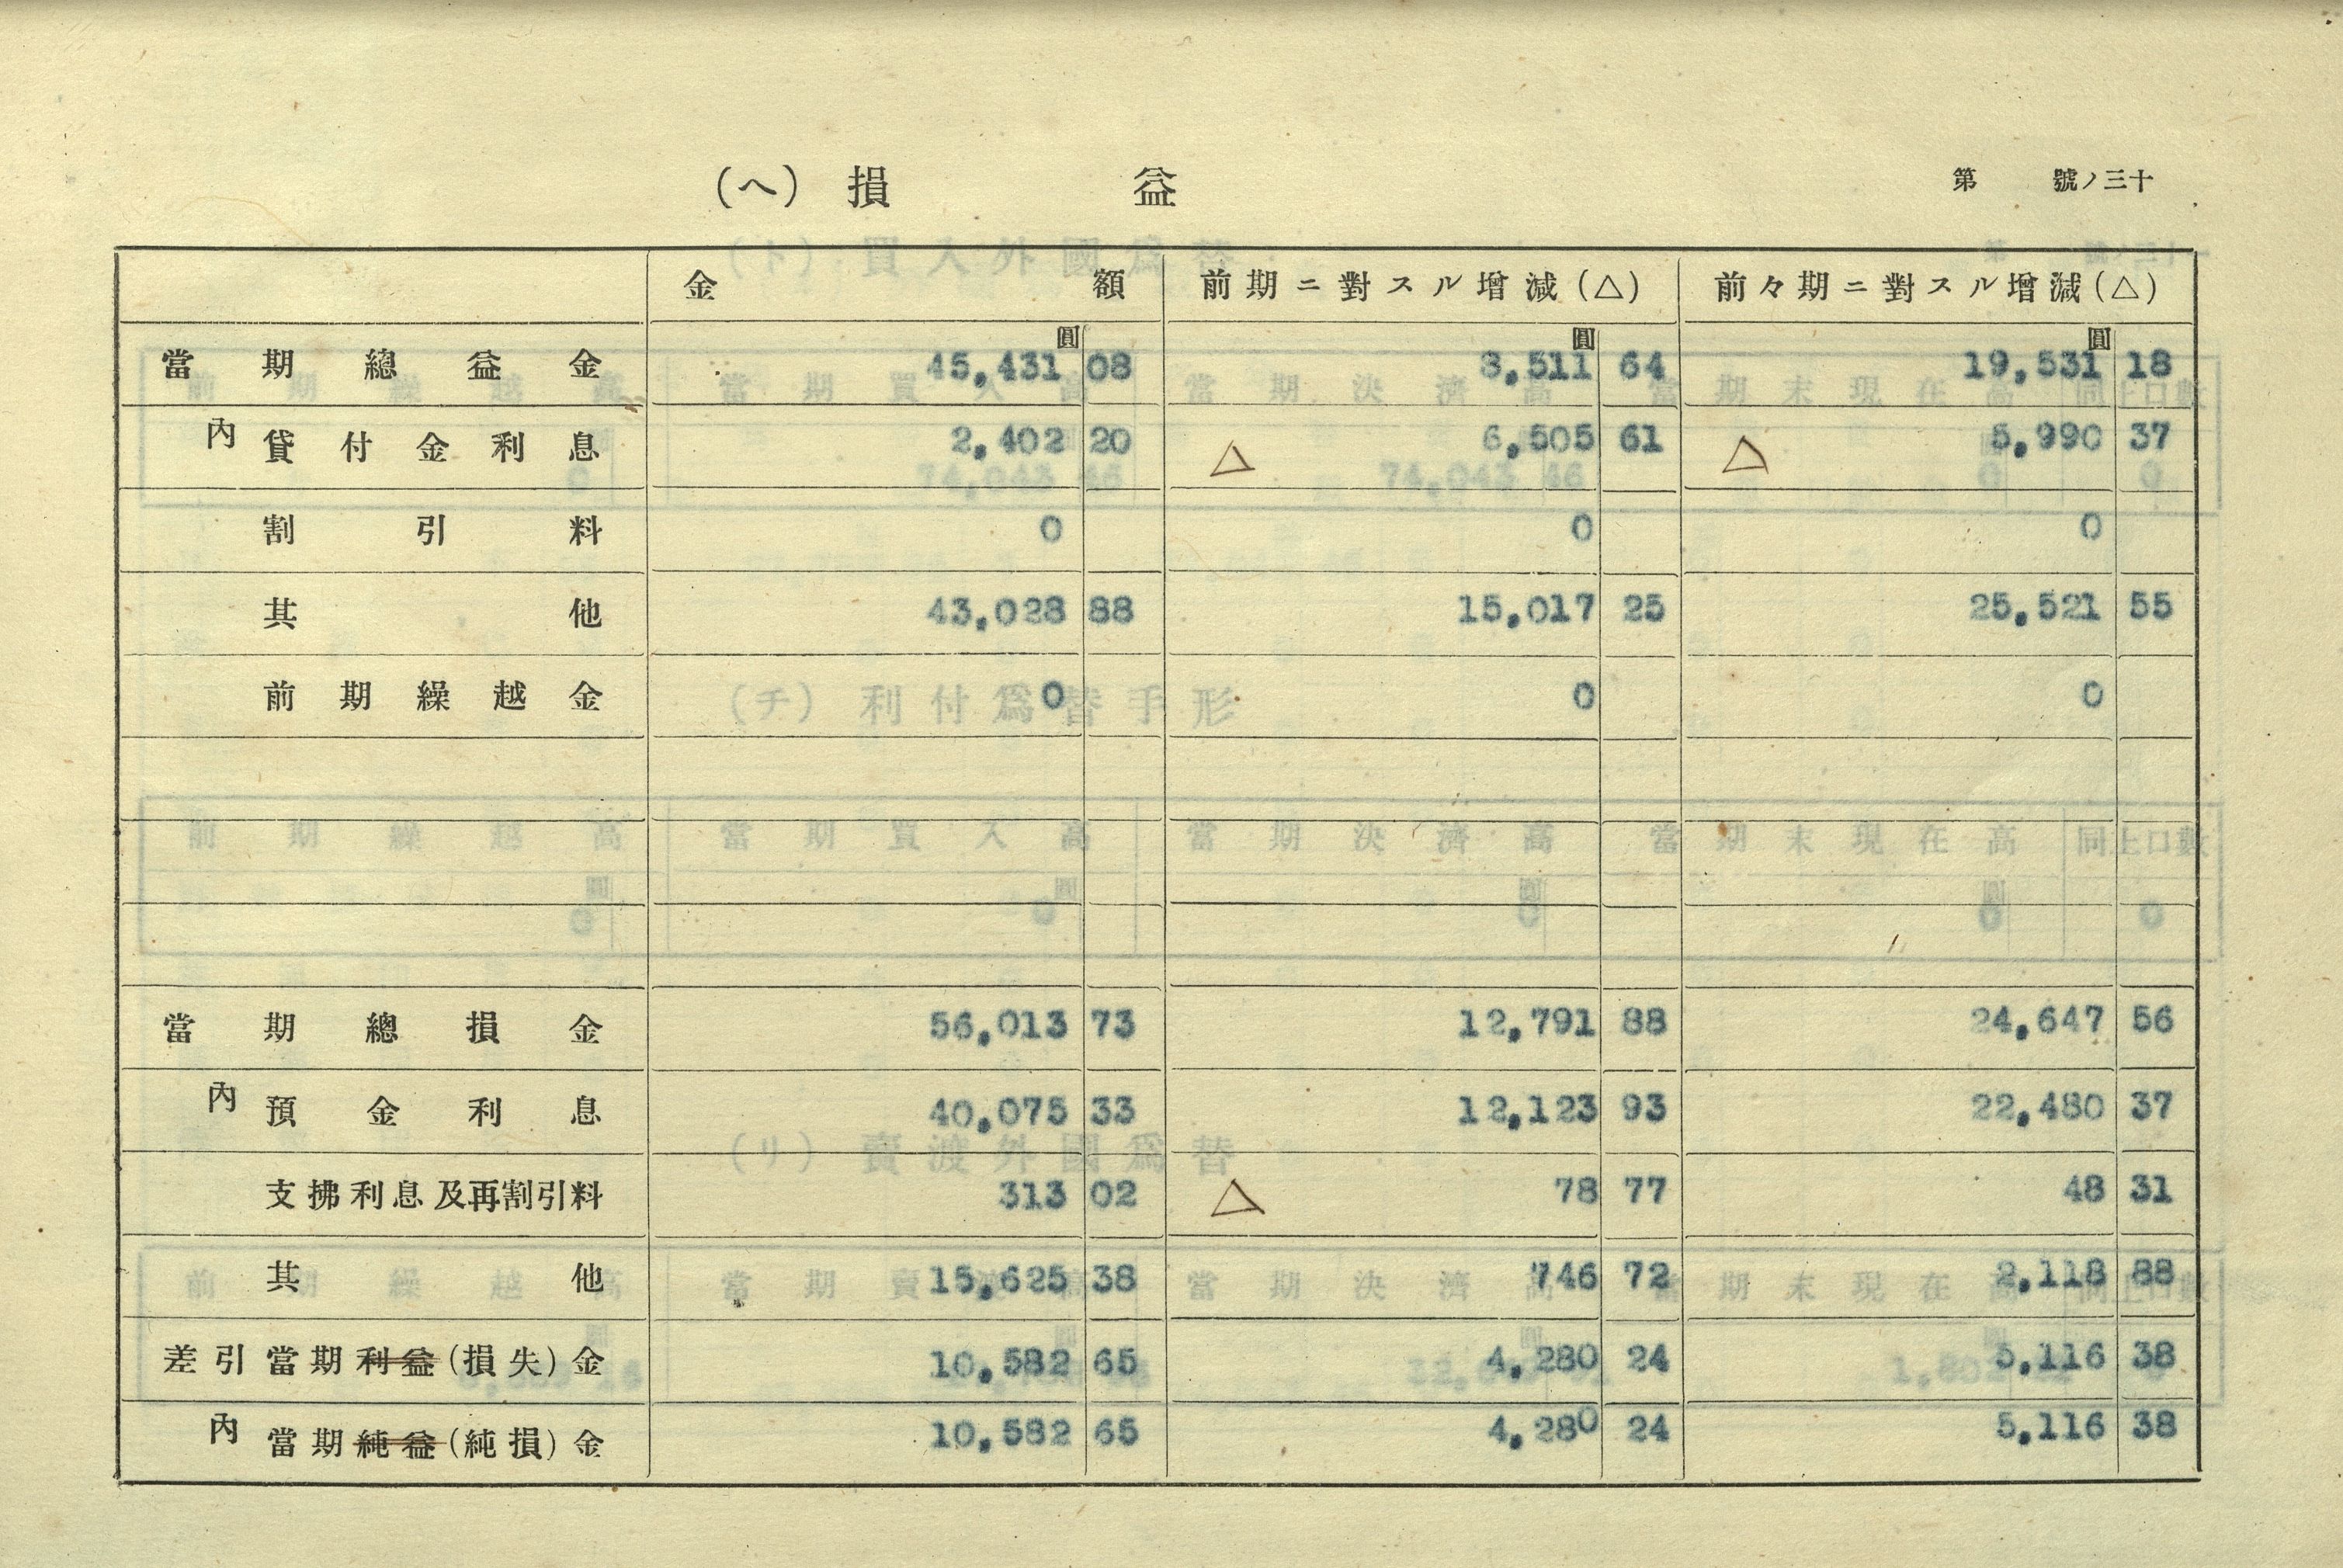 (ヘ) 損益
第 號ノ三十
金額 前期ニ對スル增減(△) 前々期ニ對スル增減(△)
圓 圓 圓
當期總益金 45,431 08 8,511 64 19,531 18
內 貸付金利息 2,402 20 △ 6,505 61 △ 5,990 37
割引料 0 0 0
其他 43,028 88 15,017 25 25,521 55
前期繰越金 0 0 0
當期總損金 56,013 73 12,791 88 24,647 56
內 預金利息 40,075 33 12,123 93 22,480 37
支拂利息及再割引料 313 02 △ 78 77 48 31
其他 15,625 38 746 72 2,118 88
差引當期利益(損失)金 10,582 65 4,280 24 5,116 38
內 當期純益(純損)金 10,582 65 4,280 24 5,116 38